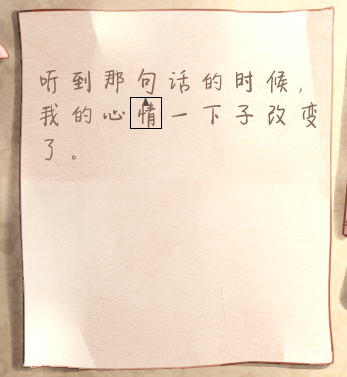 听到那句话的时候,
我的心情一下子改变
了。